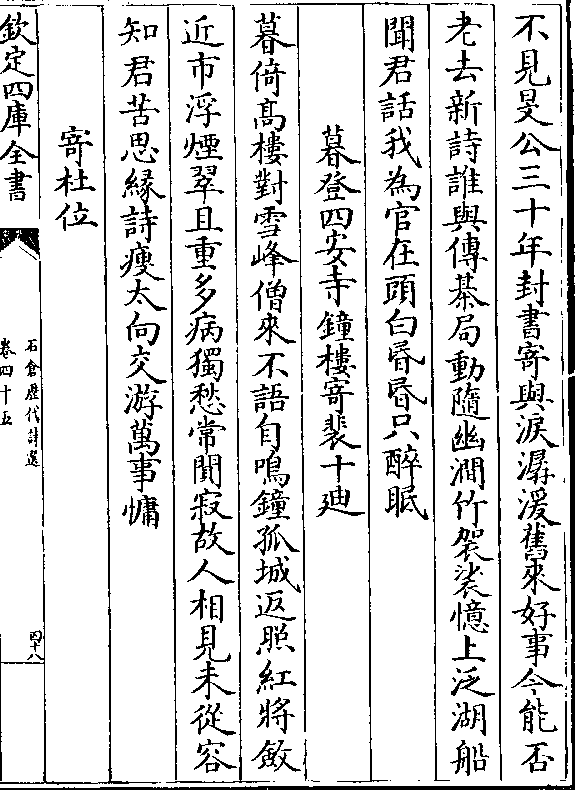 不見旻公三十年封書寄與淚潺湲舊來好事今能否
老去新詩誰與傳棊局動隨幽澗竹袈裟憶上泛湖船
聞君話我為官在頭白昏昏只醉眠
暮登四安寺鐘樓寄裴十廸
暮倚髙樓對雪峰僧來不語自鳴鐘孤城返照紅將斂
近市浮煙翠且重多病獨愁常闃寂故人相見未從容
知君苦思緣詩瘦太向交游萬事慵
寄杜位
欽定四庫全書
石倉歴代詩選
卷四十五
四十八